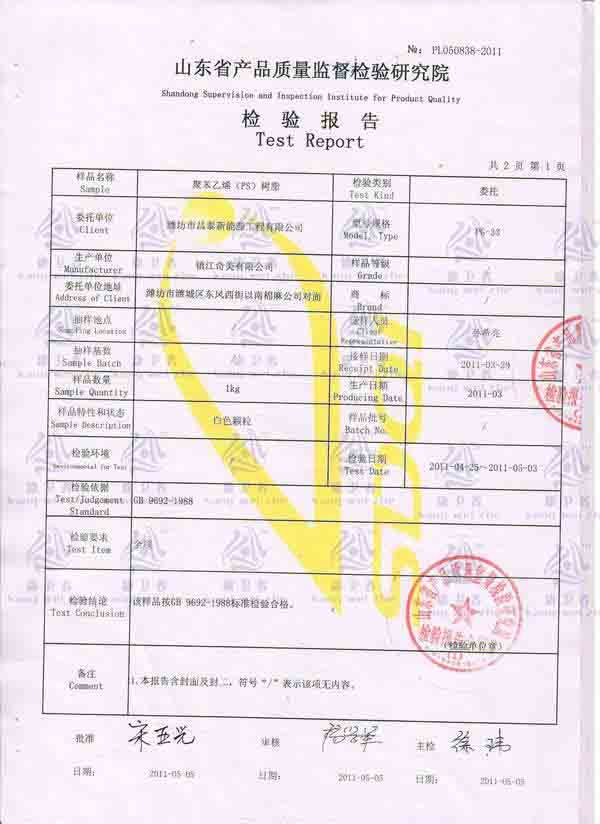 №: PL050838-2011
山东省产品质量监督检验研究院
Shandong Supervision and Inspection Institute for Product Quality
检 验 报 告
Test Report
共 2 页 第 1 页
样品名称 聚苯乙烯（PS）树脂 检验类别 委托
Sample Test Kind
委托单位 潍坊市昌泰新能源工程有限公司 型号规格 PG-33
Client Model、Type
生产单位 镇江奇美有限公司 样品等级 /
Manufacturer Grade
委托单位地址 潍坊市潍城区东风西街以南棉麻公司对面 商 标 /
Address of Client Brand
抽样地点 / 送样人员
Sampling Location Client Representative
抽样基数 / 接样日期 2011-03-29
Sample Batch Receipt Date
样品数量 1kg 生产日期 2011-03
Sample Quantity Producing Date
样品特性和状态 白色颗粒 样品批号 /
Sample Description Batch No.
检验环境 / 检验日期 2011-04-25~2011-05-03
Environmental for Test Test Date
检验依据 GB 9692-1988
Test/Judgement
Standard
检验要求 全项
Test Item
检验结论 该样品按GB 9692-1988标准检验合格。
Test Conclusion
(检验单位章)
备注 1.本报告含封面及封二，符号“/”表示该项无内容。
Comment
批准 宋亚光 审核 主检 徐玮
日期: 2011-05-05 日期: 2011-05-05 日期: 2011-05-05